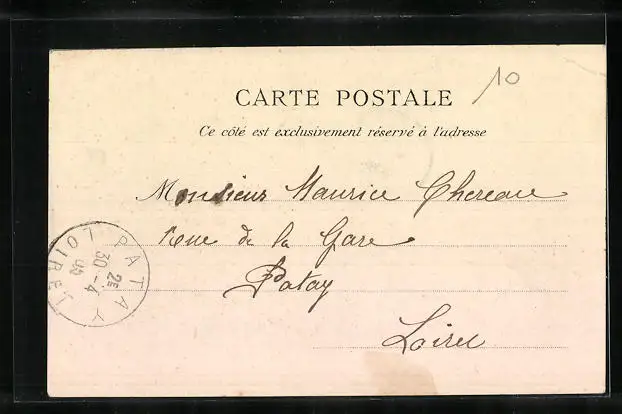 10
CARTE POSTALE
Ce côté est exclusivement réservé à l'adresse
Monsieur Maurice Chereau
Rue de la Gare
Patay
Loiret
PATAY
2E
30-4
LOIRET